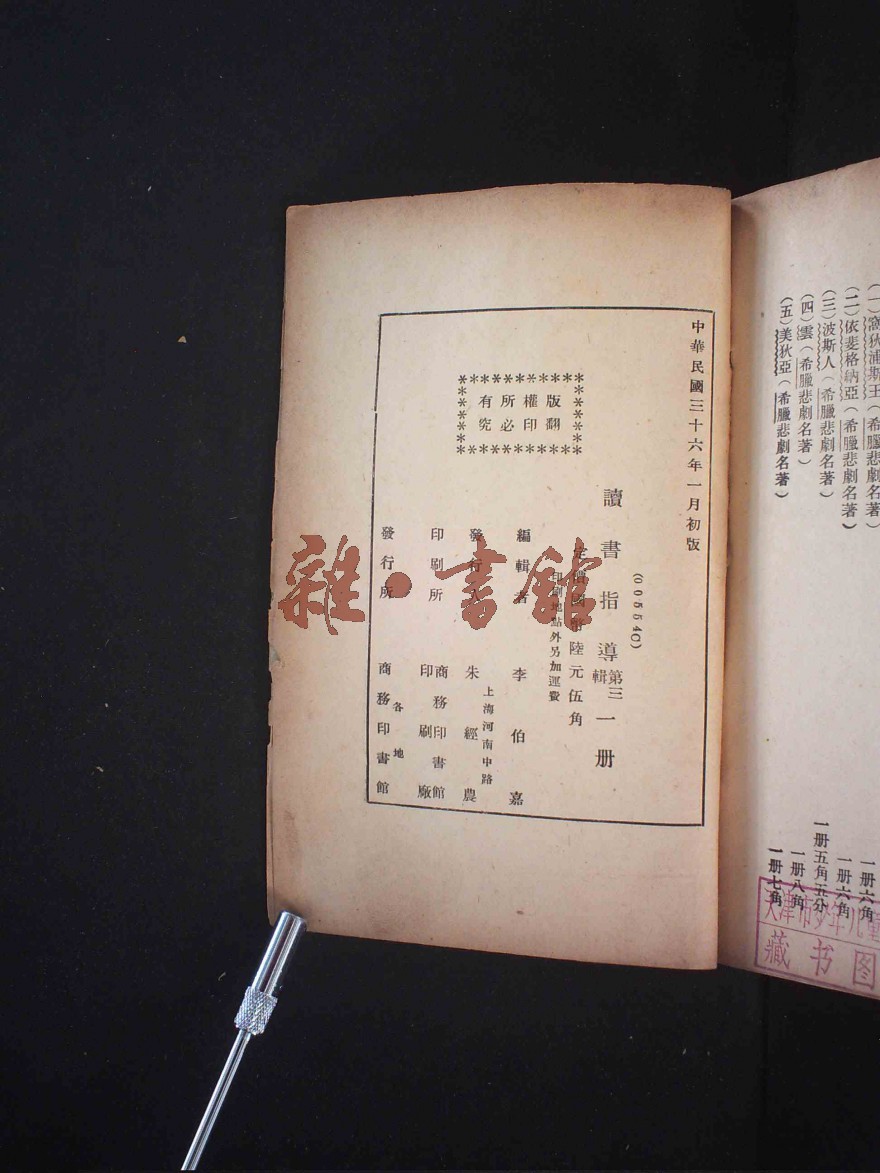 (一)窩狄浦斯王(希臘悲劇名著)
一册六角
(二)依斐格納亞(希臘悲劇名著)
一册六角
(三)波斯人(希臘悲劇名著)
一册五角五分
(四)雲(希臘悲劇名著)
一册八角
(五)美狄亞(希臘悲劇名著)
一册七角
天津市少年儿童
藏书图
中華民國三十六年一月初版
版權所有
翻印必究
(00554C)
讀書指導第三輯一册
定價國幣陸元伍角
印刷地點外另加運費
編輯者 李伯嘉
發行人 朱經農
上海河南中路
印刷所 商務印書館印刷廠
發行所 商務印書館
各地
雜·書館